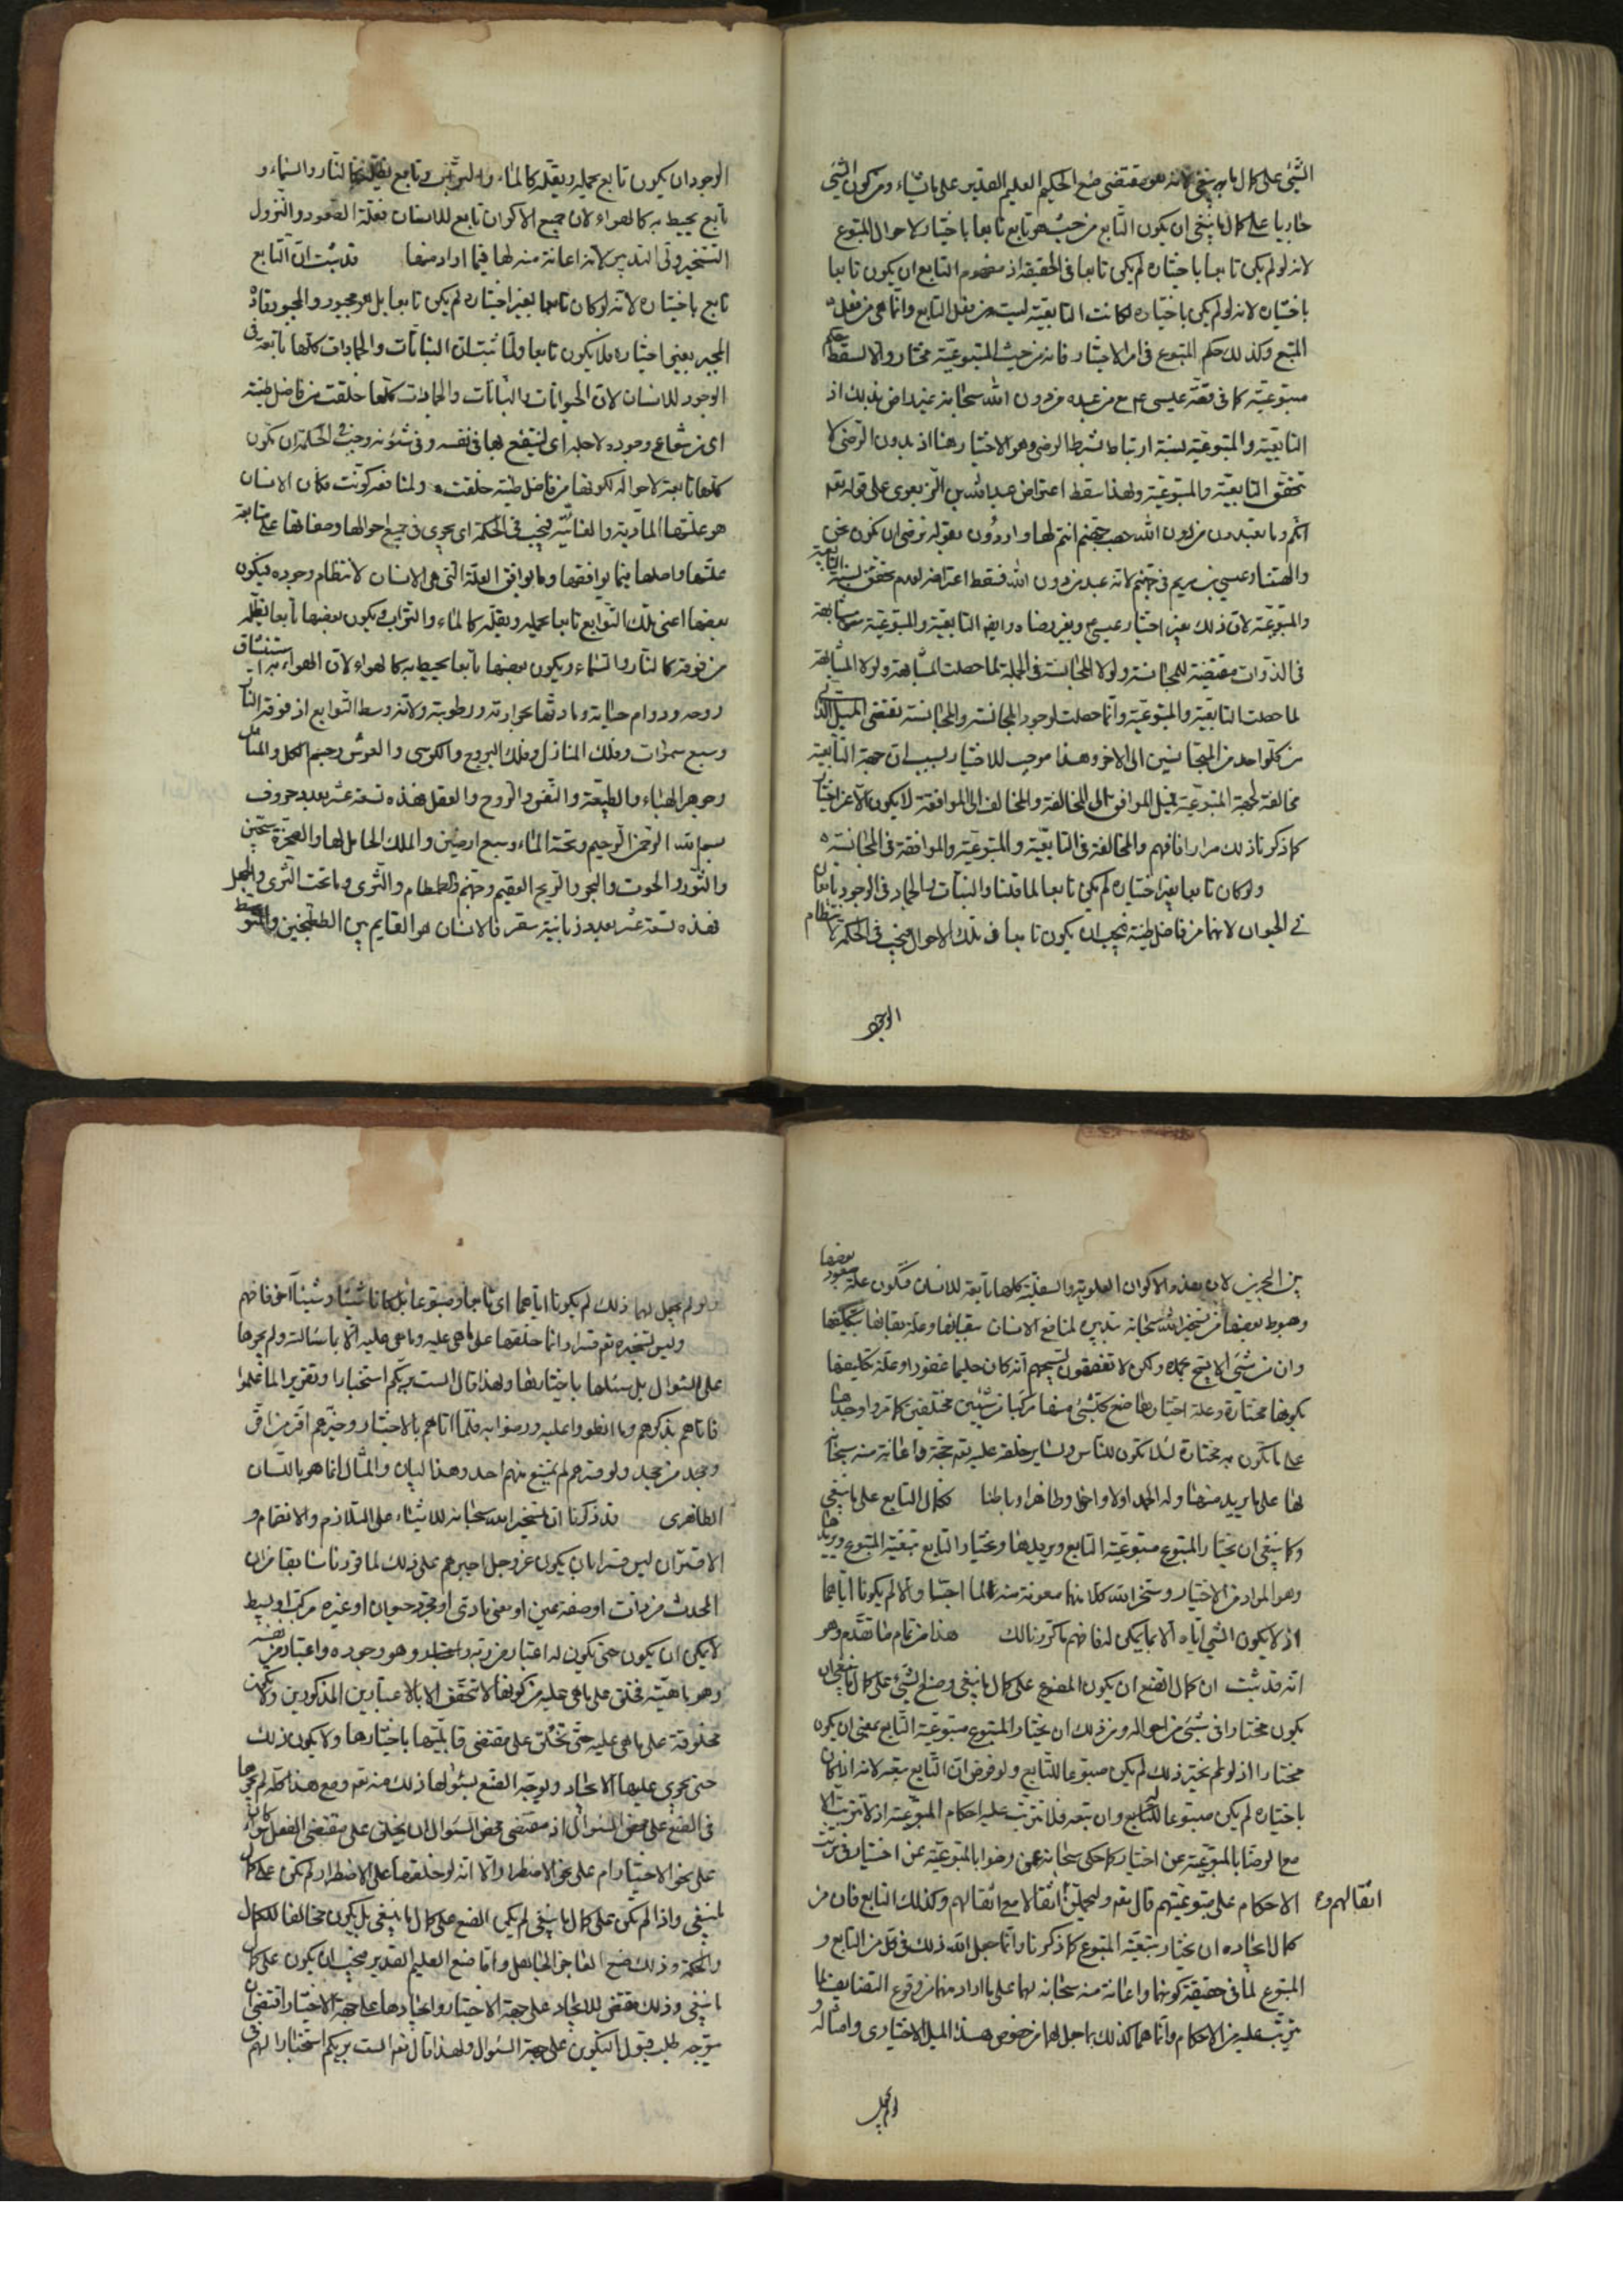 الشئ على كمال ما ينبغي لانه هو مقتضى صنع الحكيم العليم القدير على ما يشاء ومن كون الشئ
جاريا على كمال ما ينبغي ان يكون التابع من حيث هو تابع تابعا باختياره لاحوال المتبوع
لانه لو لم يكن تابعا باختياره لم يكن تابعا في الحقيقة اذ مفهوم التابع ان يكون تابعا
باختياره لانه لو لم يكن باختياره لكانت التابعية ليست من فعل التابع وانما هي من فعل
المتبع وكذلك حكم المتبوع في امر الاختيار فانه من حيث المتبوعية مختار والا لسقط حكم
متبوعيته كما في قصة عيسى ع مع من عبده من دون الله سبحانه غير راض بذلك اذ
التابعية والمتبوعية نسبة ارتباط بشرط الرضى وهو الاختيار هنا اذ بدون الرضى لا
تتحقق التابعية والمتبوعية ولهذا سقط اعتراض عبد الله بن الزبعرى على قوله تعالى
انكم وما تعبدون من دون الله حصب جهنم انتم لها واردون بقوله نرضى ان نكون نحن
والهتنا وعيسى بن مريم في جهنم لانه عبد من دون الله فسقط اعتراضه لعدم تحقق نسبة التابعية
والمتبوعية لان ذلك بغير اختيار عيسى ع وبغير رضاه وايضا التابعية والمتبوعية مشابهة
في الذوات مقتضية للمجانسة ولولا المجانسة في الجملة لما حصلت المشابهة ولولا المشابهة
لما حصلت التابعية والمتبوعية وانما حصلت لوجود المجانسة والمجانسة تقتضى الميل الذاتي
من كل واحد من المتجانسين الى الاخر وهذا موجب للاختيار بسبب ان جهة التابعية
مخالفة لجهة المتبوعية فميل الموافق الى المخالفة والمخالف الى الموافقة لا يكون الا عن اختيار
كما ذكرنا ذلك مرارا فافهم والمخالفة في التابعية والمتبوعية والموافقة في المجانسة
ولو كان تابعا بغير اختياره لم يكن تابعا لما قلنا والنبات والجماد في الوجود تابعان
للحيوان لانهما من فاضل طينته فيجب ان يكون تابعا في تلك الاحوال فيجب في الحكمة لانتظام
الوجود
الوجود ان يكون تابع يحمله ويقله كالماء والتراب وتابع يظله كالنار والسماء و
تابع يحيط به كالهواء لان جميع الاكوان تابع للانسان فعلة الصعود والنزول
التسخير ولى التدبير لانه اعانة منه لها فيما اراد منها قد ثبت ان التابع
تابع باختياره لانه لو كان تابعا بغير اختياره لم يكن تابعا بل هو مجبور والمجبور قاده
المجبر بغير اختياره فلا يكون تابعا ولما ثبت ان النباتات والجمادات كلها تابعة في
الوجود للانسان لان الحيوانات والنباتات والجمادات كلها خلقت من فاضل طينته
اى من شعاع وجوده لاجله اى لينتفع بها في نفسه وفي شئونه وجب في الحكمة ان تكون
كلها تابعة لاحواله لكونها من فاضل طينته خلقت ولمنافعه كونت فكان الانسان
هو علتها المادية والغائية فيجب في الحكمة اى يجرى في جميع احوالها وصفاتها على متابعة
علتها واصلها فيما يوافقها وما يوافق العلة التي هي الانسان لانتظام وجوده فيكون
بعضها اعنى تلك التوابع تابعا يحمله ويقله كالماء والتراب ويكون بعضها تابعا يظله
من فوقه كالنار والسماء ويكون بعضها تابعا يحيط به كالهواء لان الهواء به استنشاق
روحه ودوام حياته ومادتها بحرارته ورطوبته ولانه وسط التوابع اذ فوقه النار
وسبع سموات وفلك المنازل وفلك البروج والكرسى والعرش وجسم الكل والمثال
وجوهر الهباء والطبيعة والنفس والروح والعقل فهذه تسعة عشر بعدد حروف
بسم الله الرحمن الرحيم وتحته الماء وسبع ارضين والملك الحامل لها والصخرة سجين
والثور والحوت والبحر والريح العقيم وجهنم والطمطام والثرى وما تحت الثرى والجهل
فهذه تسعة عشر بعدد زبانية سقر فالانسان هو القايم بين الطتنجين والمتوسط
بين البحرين لان هذه الاكوان العلوية والسفلية كلها تابعة للانسان فتكون علة صعود بعضها
وهبوط بعضها من تسخير الله سبحانه بتدبيره لمنافع الانسان ببقائها وعلة بقائها بتكليفها
وان من شئ الا يسبح بحمده ولكن لا تفقهون تسبيحهم انه كان حليما غفورا وعلة تكليفها
بكونها مختارة وعلة اختيارها صنع كل شئ منها مركبا من شيئين مختلفين كما مر واوجدها
على ما تكون به مختارة لئلا يكون للناس ولسائر خلقه عليه تعالى حجة واعانة منه سبحانه
لها على ما يريد منها وله الحمد اولا واخرا وظاهرا وباطنا فكمال التابع على ما ينبغي
وكما ينبغي ان يختار المتبوع متبوعية التابع ويريدها ويختار التابع تبعية المتبوع ويريدها
وهو المراد من الاختيار وسخر الله كلا منهما معونة منه لما احتسبا والا لم يكونا اياهما
اذ لا يكون الشئ اياه الا بما يمكن له فافهم ما كررنا لك هذا من تمام ما تقدم وهو
انه قد ثبت ان كمال الصنع ان يكون المصنوع على كمال ما ينبغي وصنع الشئ على كمال ما ينبغي ان
يكون مختارا في شئ من احواله ومن ذلك ان يختار المتبوع متبوعية التابع بمعنى ان يكون
مختارا اذ لو لم يختر ذلك لم يكن متبوعا للتابع ولو فرض ان التابع يتبعه لانه اذا كان
باختياره لم يكن متبوعا للتابع وان تبعه فلا تترتب عليه احكام المتبوعية اذ لا تترتب الا
مع الرضا بالمتبوعية عن اختيار كما حكى سبحانه عمن رضوا بالمتبوعية عن اختيار فترتبت
الاحكام على متبوعيتهم قال تعالى وليحملن اثقالا مع اثقالهم وكذلك التابع فان من
اثقالهم و
كمال ايجاده ان يختار تبعية المتبوع كما ذكرنا وانما جعل الله ذلك في كل من التابع و
المتبوع لما في حقيقة كونهما واعانة منه سبحانه لهما على ما اراد منهما من وقوع التضايف لما
يترتب عليه من الاحكام وانما هما كذلك بما جعل لهما من خصوص هذا الميل الاختيارى وامثاله
ولو لم يجعل
ولو لم يجعل لهما ذلك لم يكونا اياهما اى تابعا ومتبوعا بل كانا شيئا وشيئا اخر فافهم
وليس تسخيره تعالى قسرا وانما خلقها على ما هى عليه وما هى عليه الا باسئالته ولم يجرها
على السؤال بل سئلها باختيارها ولهذا قال الست بربكم استخبارا وتقريرا لما علموا
فاتاهم بذكرهم وما انطووا عليه ورضوا به فلما اتاهم بالاختيار وخيرهم اقر من اقر
وجحد من جحد ولو قسرهم لم يمتنع منهم احد وهذا البيان والمثال انما هو باللسان
الظاهرى قد ذكرنا ان تسخير الله سبحانه للاشياء على التلازم والانضمام و
الاقتران ليس قسرا بان يكون عز وجل اجبرهم على ذلك لما قررنا سابقا من ان
المحدث من ذات او صفة عين او معنى مادى او مجرد حيوان او غيره مركب او بسيط
لا يمكن ان يكون حتى يكون له اعتبار من ربه وهو وجوده واعتبار من نفسه
وهو ماهيته فخلق على ما هى عليه من كونها لا تتحقق الا بالاعتبارين المذكورين ولا تكون
مخلوقة على ما هى عليه حتى تخلق على مقتضى قابليتها باختيارها ولا يكون ذلك
حتى يجرى عليها الايجاد ويوجه الصنع بسئوالها ذلك منه تعالى ومع هذا كله لم يجرها
في الصنع على محض السؤال اذ مقتضى محض السئوال ان يخلق على مقتضى الفعل سواء كان
على نحو الاختيار ام على نحو الاضطرار والا انه لو خلقها على الاضطرار لم تكن على كمال
ما ينبغي واذا لم تكن على كمال ما ينبغي لم يكن الصنع على كمال ما ينبغي بل يكون مخالفا للكمال
والحكمة وذلك صنع العاجز الجاهل واما صنع العليم القدير فيجب ان يكون على كمال
ما ينبغي وذلك مقتضى للايجاد على جهة الاختيار وايجادها على جهة الاختيار اقتضى ان
يتوجه طلب قبول التكوين على جهة السئوال ولهذا قال تعالى الست بربكم استخبارا لهم في